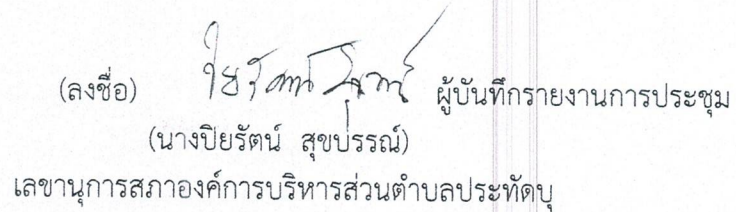 (ลงชื่อ) ผู้บันทึกรายงานการประชุม
(นางปิยรัตน์ สุขบรรณ์)
เลขานุการสภาองค์การบริหารส่วนตำบลประทัดบุ